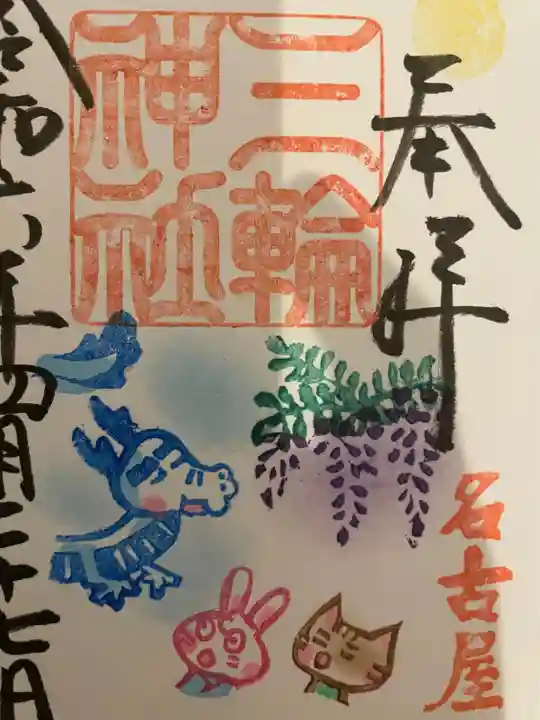 奉拝
三輪
神社
名古屋
令和六年四月二十七日